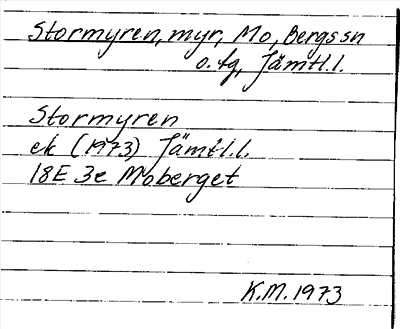 Stormyren, myr, Mo, Bergs sn
o. tg, Jämtl. l.
Stormyren
ek (1973) Jämtl. l.
18E 3e Moberget
K.M. 1973